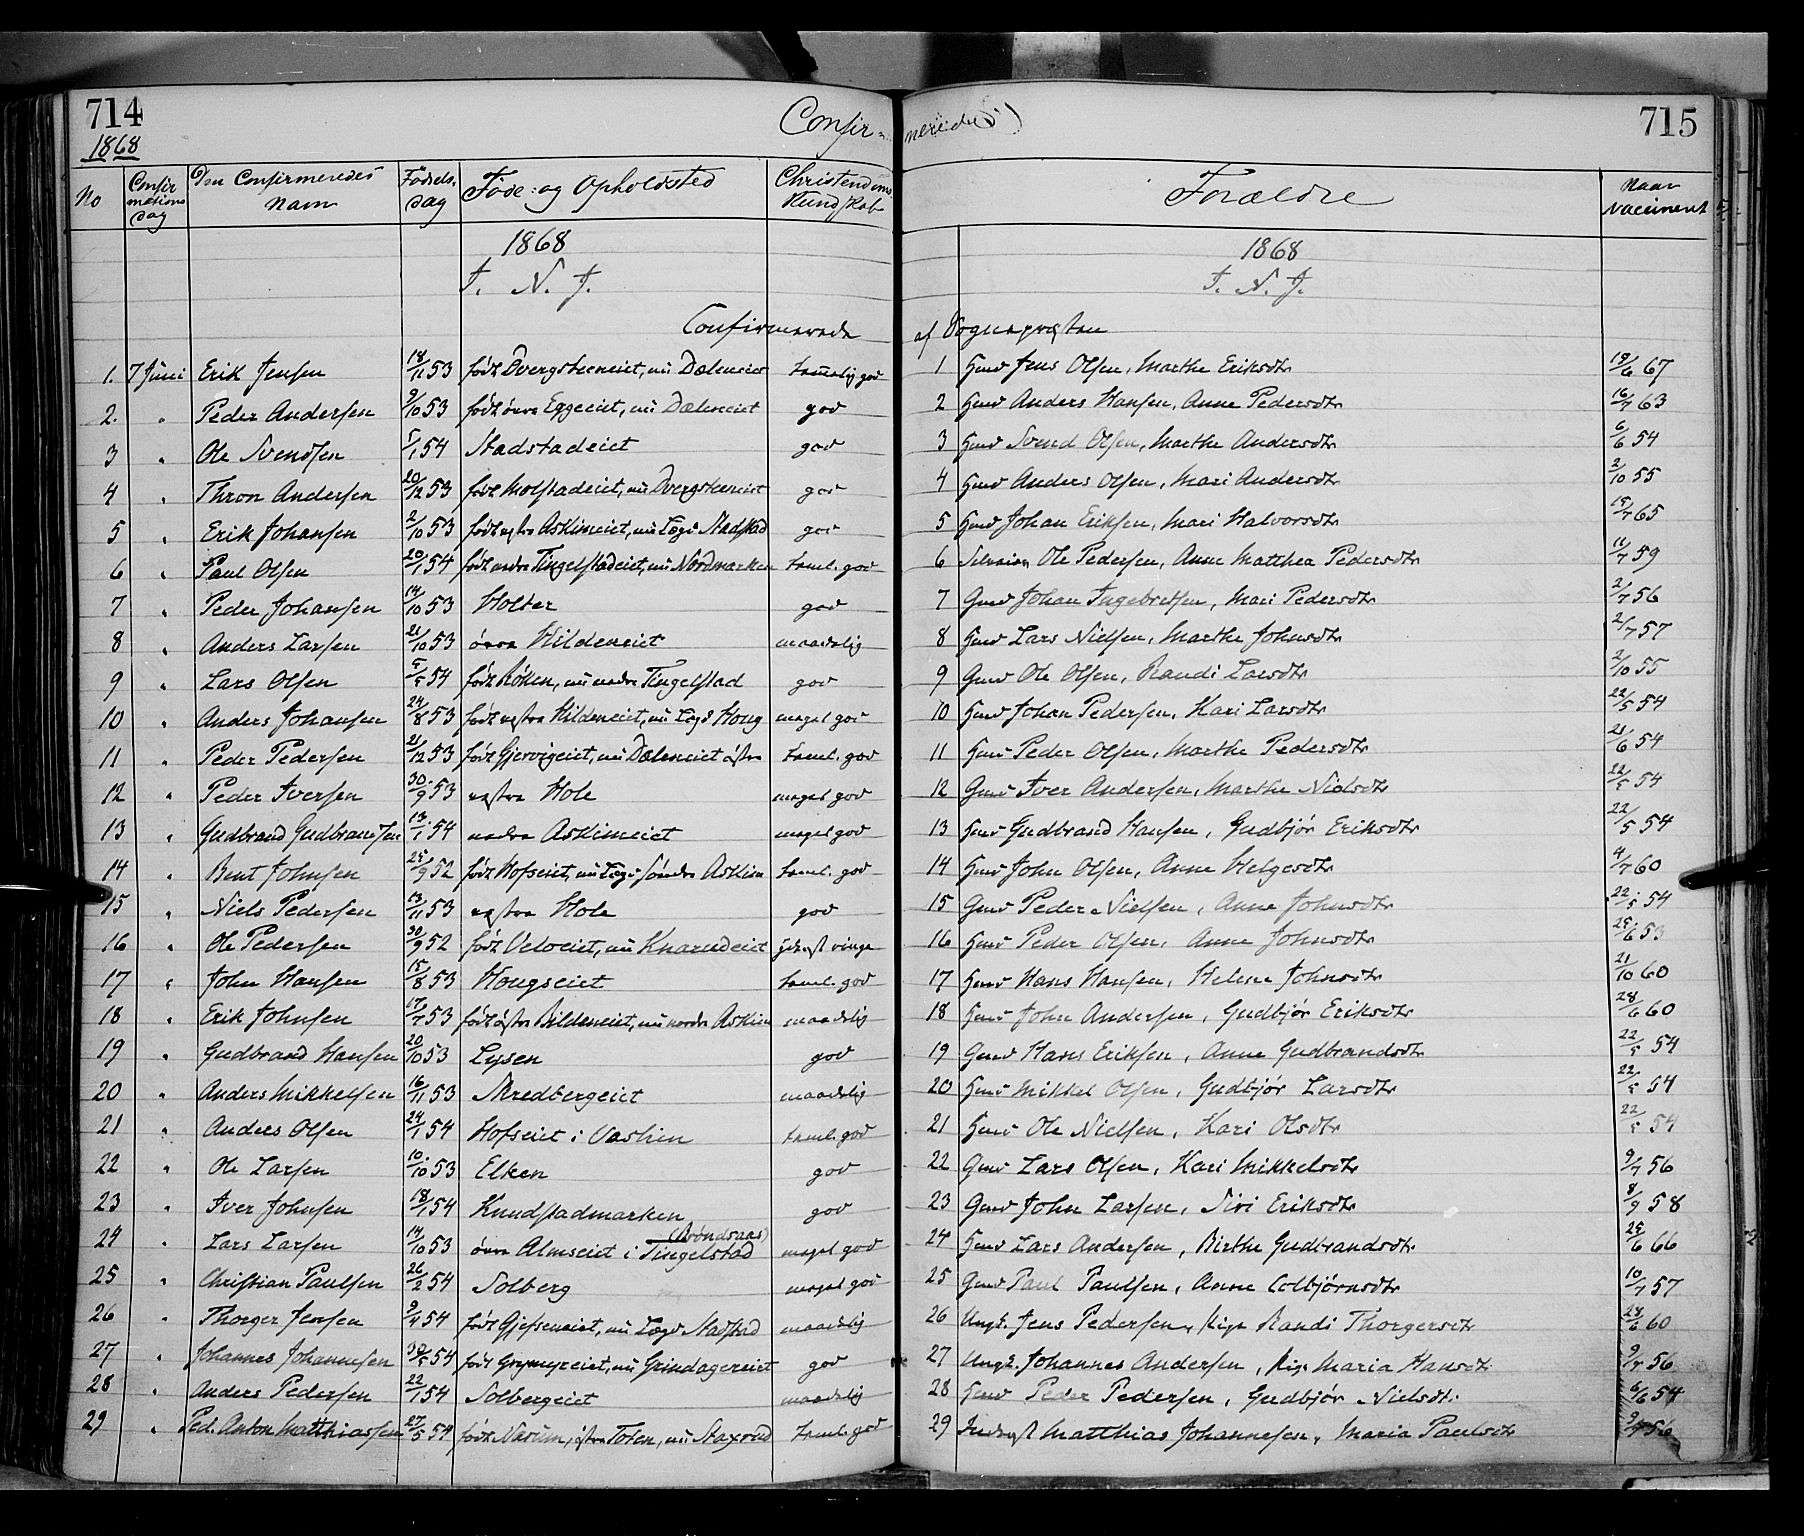 714
Confir-
1868
No Confirmations Dag Den Confirmeredes Navn Fødsels-dag Føde- og Opholdsted Christendoms Kundskab
1868
J. N. J.
Confirmerede
1. 7 Juni Erik Jensen 18/11 53 født Dvergsteneiet, nu Dæleneiet temmelig god
2. " Peder Andersen 9/10 53 født øvre Eggeeiet, nu Dæleneiet god
3 " Ole Svendsen 5/1 54 Stadstadeiet god
4 " Thron Andersen 20/12 53 født Molstadeiet, nu Dvergsteneiet god
5 " Erik Johansen 2/10 53 født vestre Askimeiet, nu Lægd Stadstad god
6 " Paul Olsen 20/1 54 født nedre Tingelstadeiet, nu Nordmarken teml. god
7 " Peder Johansen 14/10 53 Holter god
8 " Anders Larsen 21/10 53 øvre Hildeneiet maadelig
9 " Lars Olsen 5/5 54 født Røken, nu nedre Tingelstad god
10 " Anders Johansen 24/8 53 født vestre Hildeneiet, nu Lægd Houg meget god
11 " Peder Pedersen 21/12 53 født Gjervigeiet, nu Dæleneiet østre teml. god
12 " Peder Iversen 30/9 53 vestre Hole meget god
13 " Gudbrand Gudbrandsen 13/1 54 nedre Askimeiet meget god
14 " Bent Johnsen 25/9 52 født Hofseiet, nu Lægd søndre Askim teml. god
15 " Niels Pedersen 13/11 53 vestre Hole god
16 " Ole Pedersen 30/9 52 født Veloeiet, nu Knarudeiet høist ringe
17 " John Hansen 15/8 53 Hougseiet teml. god
18 " Erik Johnsen 17/7 53 født østre Bildeneiet, nu nordre Askim maadelig
19 " Gudbrand Hansen 20/10 53 Lysen god
20 " Anders Mikkelsen 16/11 53 Skredbergeiet maadelig
21 " Anders Olsen 24/1 54 Hofseiet i Vashien teml. god
22 " Ole Larsen 10/10 53 Elken god
23 " Iver Johnsen 18/1 54 Knudstadmarken god
24 " Lars Larsen 14/10 53 øvre Almseiet i Tingelstad (Brøndsnæs) meget god
25 " Christian Paulsen 26/2 54 Solberg meget god
26 " Thorger Jensen 9/4 54 født Gjefseneiet, nu Lægd Stadstad maadelig
27 " Johannes Johannesen 30/5 54 født Grymyreiet, nu Grindagereiet god
28 " Anders Pedersen 22/1 54 Solbergeiet maadelig
29 " Ped. Anton Matthiassen 27/5 54 født Narum, østre Toten, nu Staxrud teml. god
merede
715
Forældre
Naar vaccineret
1868
J. N. J.
af Sognepræsten
1 Hmd Jens Olsen, Marthe Eriksdtr 19/6 67
2 Hmd Anders Hansen, Anne Pedersdtr 16/7 63
3 Hmd Svend Olsen, Marthe Andersdtr 6/6 54
4 Hmd Anders Olsen, Mari Andersdtr 2/10 55
5 Hmd Johan Eriksen, Mari Halvorsdtr 15/7 65
6 Ole Pedersen, Anne Matthea Pedersdtr 11/7 59
7 Gmd Johan Ingebretsen, Mari Pedersdtr 2/7 56
8 Hmd Lars Nielsen, Marthe Johnsdtr 2/7 57
9 Gmd Ole Olsen, Randi Larsdtr 2/10 55
10 Hmd Johan Pedersen, Kari Larsdtr 22/5 54
11 Hmd Peder Olsen, Marthe Pedersdtr 21/6 54
12 Gmd Iver Andersen, Marthe Nielsdtr 22/5 54
13 Hmd Gudbrand Hansen, Gudbjør Eriksdtr 22/5 54
14 Hmd John Olsen, Anne Helgesdtr 4/7 60
15 Gmd Peder Nielsen, Anne Johnsdtr 22/5 54
16 Hmd Peder Olsen, Anne Johnsdtr 25/6 53
17 Hmd Hans Hansen, Helene Johnsdtr 21/10 60
18 Hmd John Andersen, Gudbjør Eriksdtr 28/6 60
19 Gmd Hans Eriksen, Anne Gudbrandsdtr 22/5 54
20 Hmd Mikkel Olsen, Gudbjør Larsdtr 22/5 54
21 Hmd Ole Nielsen, Kari Olsdtr 22/5 54
22 Gmd Lars Olsen, Kari Mikkelsdtr 9/7 56
23 Gmd John Larsen, Siri Eriksdtr 8/9 58
24 Hmd Lars Andersen, Birthe Gudbrandsdtr 25/6 66
25 Gmd Paul Paulsen, Anne Colbjørnsdtr 10/7 57
26 Ungk. Jens Pedersen, Pige Randi Thorgersdtr 28/6 60
27 Ungk. Johannes Andersen, Pige Maria Hansdtr 9/7 56
28 Hmd Peder Pedersen, Gudbjør Nielsdtr 6/6 54
29 Inderst Matthias Johannesen, Maria Paulsdtr 9/7 56